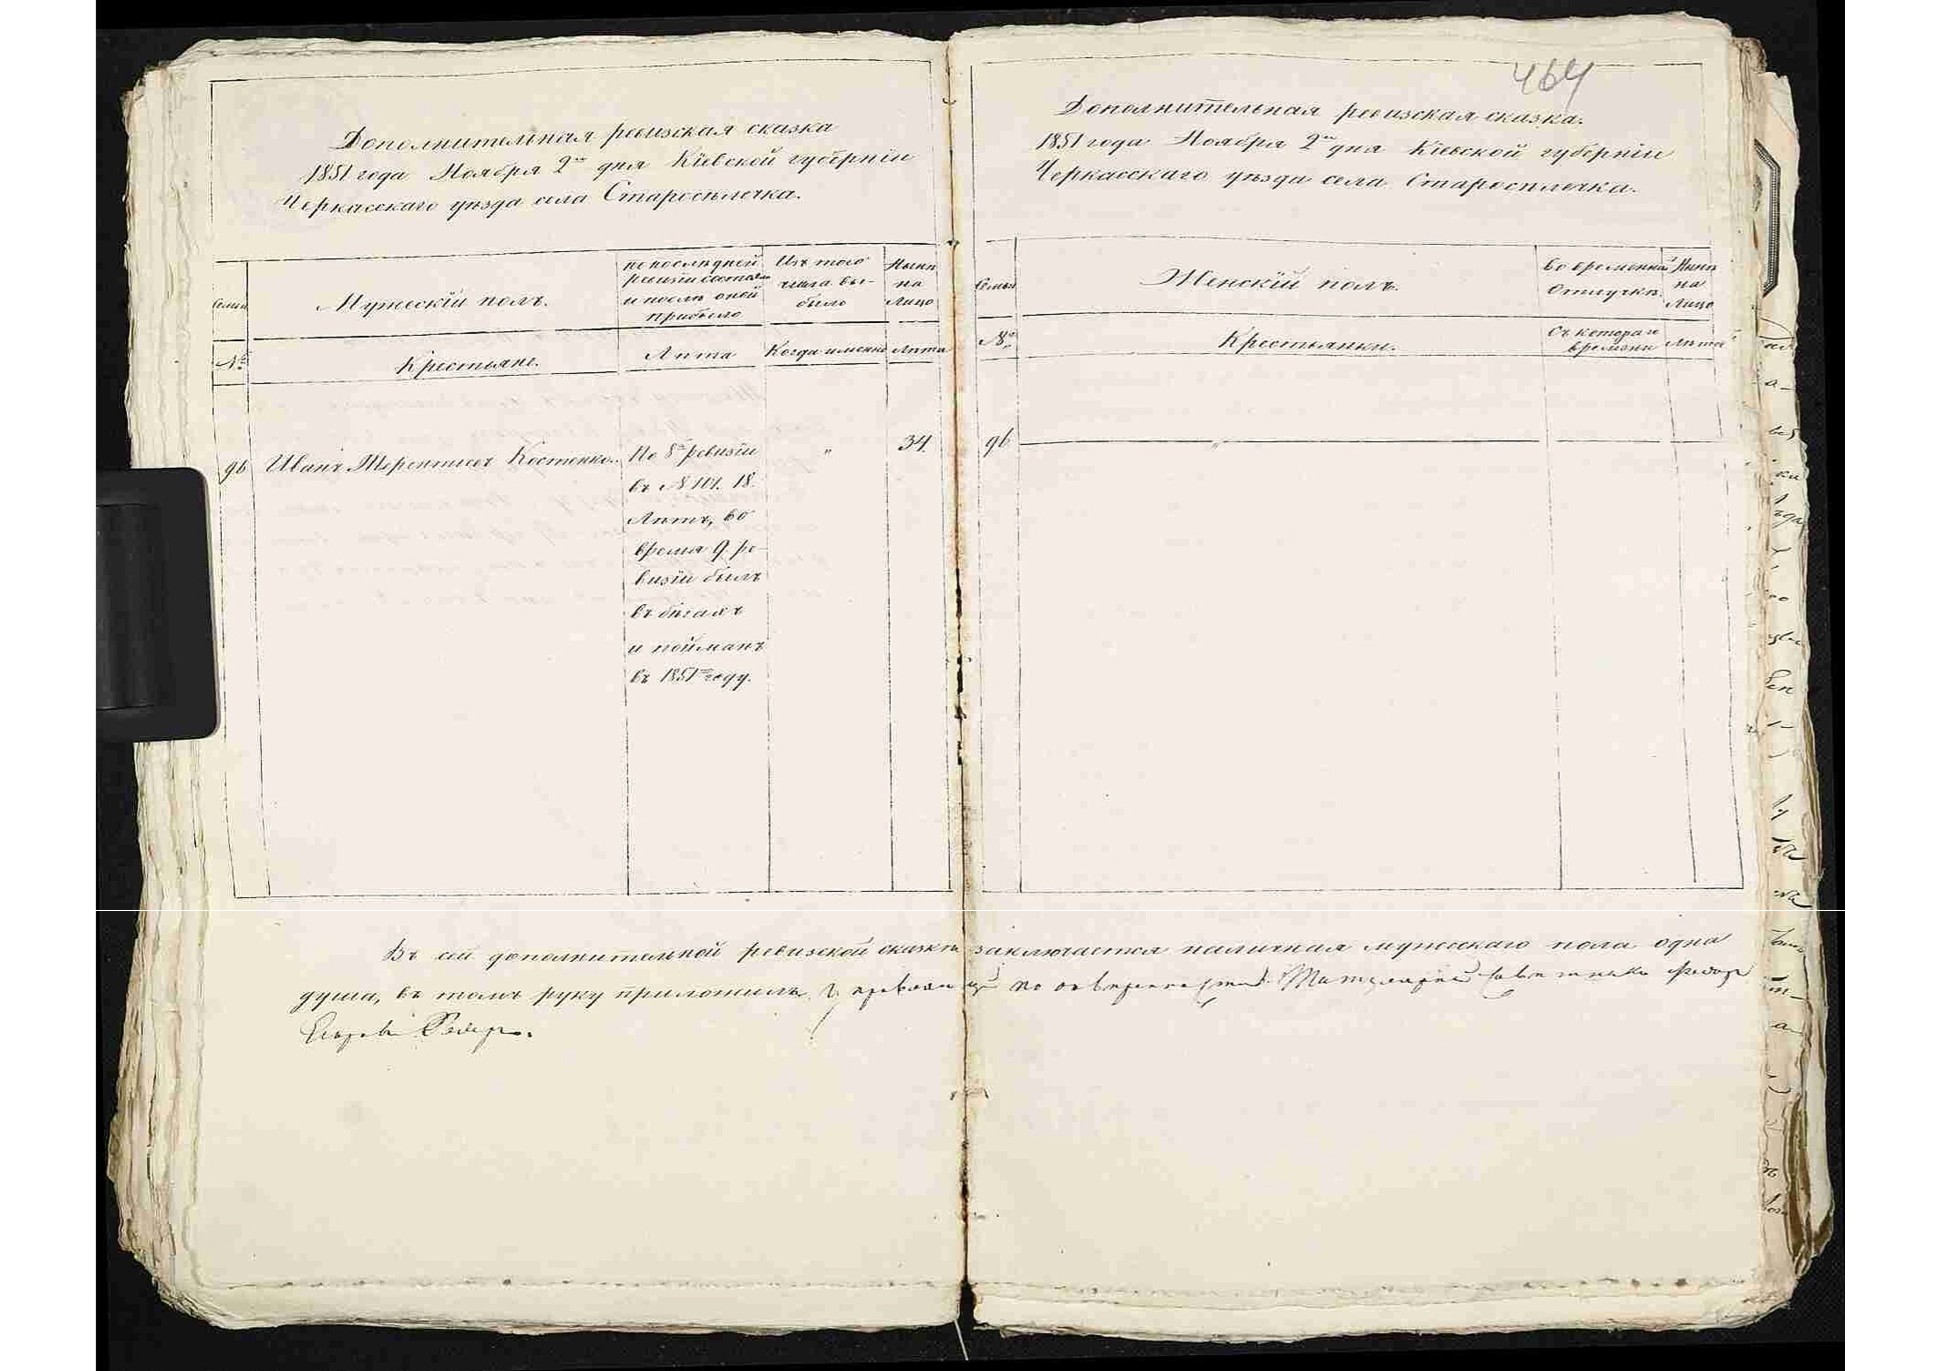 464
Дополнительная ревизская сказка
1851 года Ноября 2го дня Кіевской губерніи
Черкасскаго уѣзда села Старосѣлечка.
Семьи
Мужескій полъ.
по послѣдней
ревизіи состояло
и послѣ оной
прибыло
Изъ того
числа вы-
было
Нынѣ
на
Лицо
№
Крестьяне.
Лѣта
Когда именно
Лѣта
96
Иванъ Терентіевъ Костенко.
По 8й ревизіи
въ № 101. 18
Лѣтъ, во
время 9 ре-
визіи былъ
въ бѣгахъ
и пойманъ
въ 1851мъ году.
"
34.
Дополнительная ревизская сказка.
1851 года Ноября 2го дня Кіевской губерніи
Черкасскаго уѣзда села Старосѣлечка.
Семьи
Женскій полъ.
во временной
Отлучкѣ.
Нынѣ
на
Лицо
№
Крестьянки.
Съ котораго
времени
Лѣта
96
"
Въ сей дополнительной ревизской сказкѣ заключается наличная мужескаго пола одна
душа, въ томъ руку приложилъ, по